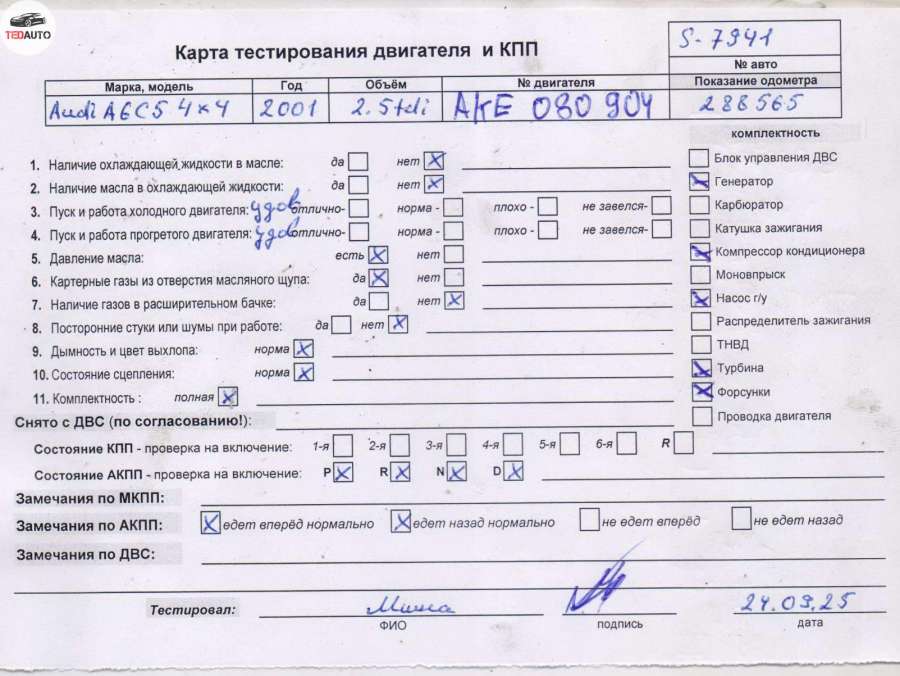 TEDAUTO
Карта тестирования двигателя и КПП
S-7941
№ авто
Марка, модель Год Объём № двигателя Показание одометра
Audi A6C5 4x4 2001 2.5tdi AKE 080904 288565
комплектность
1. Наличие охлаждающей жидкости в масле: да нет X
Блок управления ДВС
2. Наличие масла в охлаждающей жидкости: да нет X
Генератор
3. Пуск и работа холодного двигателя: удов отлично- норма - плохо - не завелся-
Карбюратор
4. Пуск и работа прогретого двигателя: удов отлично- норма - плохо - не завелся-
Катушка зажигания
5. Давление масла: есть X нет
Компрессор кондиционера
6. Картерные газы из отверстия масляного щупа: да X нет
Моновпрыск
7. Наличие газов в расширительном бачке: да нет X
Насос г/у
8. Посторонние стуки или шумы при работе: да нет X
Распределитель зажигания
9. Дымность и цвет выхлопа: норма X
ТНВД
10. Состояние сцепления: норма X
Турбина
11. Комплектность : полная X
Форсунки
Снято с ДВС (по согласованию!):
Проводка двигателя
Состояние КПП - проверка на включение: 1-я 2-я 3-я 4-я 5-я 6-я R
Состояние АКПП - проверка на включение: P X R X N X D X
Замечания по МКПП:
Замечания по АКПП: X едет вперёд нормально X едет назад нормально не едет вперёд не едет назад
Замечания по ДВС:
Тестировал: Миша 24.09.25
ФИО подпись дата